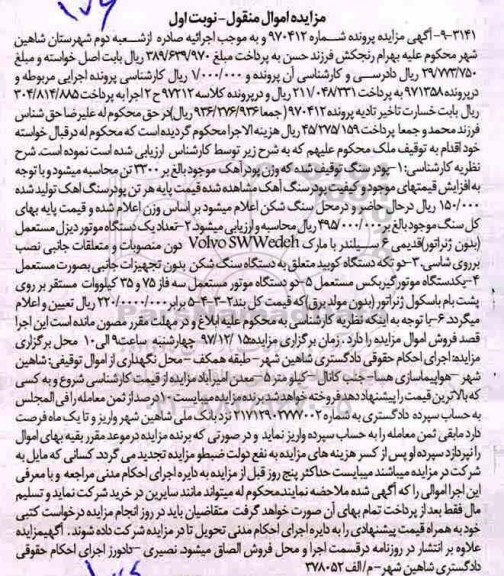 مزایده اموال منقول - نوبت اول
۹-۳۱۴۱- آگهی مزایده پرونده شماره ۹۷۰۴۱۲ و به موجب اجرائیه صادره ازشعبه دوم شهرستان شاهین
شهر محکوم علیه بهرام رنجکش فرزند حسن به پرداخت مبلغ ۳۸۹/۶۳۹/۹۷۰ ریال بابت اصل خواسته و مبلغ
۳۹/۷۷۳/۷۵۰ ریال دادرسی و کارشناسی آن پرونده و ۱/۰۰۰/۰۰۰ ریال کارشناسی پرونده اجرایی مربوطه و
درپرونده ۹۷۱۳۵۸ به پرداخت ۲۱۱/۰۴۸/۳۳۱ ریال و درپرونده کلاسه ۹۷۲۱۲ ح ۲ اجرا به پرداخت ۳۰۴/۸۱۴/۸۸۵
ریال بابت خسارت تاخیر تادیه پرونده ۹۷۰۴۱۲ (جمعا ۹۳۶/۲۷۶/۹۳۶ ریال) در حق محکوم له علیرضا حق شناس
فرزند محمد و جمعا پرداخت ۴۵/۲۷۵/۱۵۹ ریال هزینه الاجرا محکوم گردیده است که محکوم له درقبال خواسته
خود اقدام به توقیف ملک محکوم علیهم که به شرح زیر توسط کارشناس ارزیابی شده است نموده است. شرح
نظریه کارشناسی: ۱-پودر سنگ توقیف شده که وزن پودرآهک موجود بالغ بر ۳۳۰۰ تن محاسبه میشود و با توجه
به افزایش قیمتهای موجود و کیفیت پودر سنگ آهک مشاهده شده قیمت پایه هر تن پودرسنگ اهک تولید شده
۱۵۰/۰۰۰ ریال درحال حاضر و درمحل سنگ شکن اعلام میشود بر اساس وزن اعلام شده و قیمت پایه بهای
کل سنگ موجود بالغ بر ۴۹۵/۰۰۰/۰۰۰ ریال محاسبه و ارزیابی میشود ۲-تعداد یک دستگاه موتور دیزل مستعمل
(بدون ژنراتور)قدیمی ۶ سیلندر با مارک Volvo SWWedeh دون منصوبات و متعلقات جانبی نصب
برروی شاسی، ۳-دو تکه دستگاه کوبید متعلق به دستگاه سنگ شکن بدون تجهیزات جانبی بصورت مستعمل
۴-یکدستگاه موتورگیربکس مستعمل ۵-دو دستگاه موتور مستعمل سه فاز ۷۵ و ۳۵ کیلووات مستقر بر روی
پشت بام باسکول ژنراتور (بدون مولد برق)که قیمت کل بند۲-۳-۴-۵ برابر ۲۲۰/۰۰۰/۰۰۰ ریال تعیین و اعلام
میگردد. ۶-با توجه به اینکه نظریه کارشناسی به محکوم علیه ابلاغ و در مهلت مقرر مصون مانده است این اجرا
قصد فروش اموال مزایده را دارد. زمان برگزاری مزایده: ۹۷/۱۲/۱۵ چهارشنبه ساعت ۹ الی ۱۰ محل برگزاری
مزایده: اجرای احکام حقوقی دادگستری شاهین شهر-طبقه همکف-محل نگهداری از اموال توقیفی: شاهین
شهر-هواپیماسازی هسا-جنب کانال-کیلو متر ۵-معدن امیرآباد مزایده از قیمت کارشناسی شروع و به کسی
که بالاترین قیمت را پیشنهاد دهد فروخته خواهد شد برنده مزایده میبایست ۱۰ درصد از ثمن معامله را فی المجلس
به حساب سپرده دادگستری به شماره ۲۱۷۱۲۹۰۲۷۷۰۰۲ نزد بانک ملی شاهین شهر واریز و تا یک ماه فرصت
دارد مابقی ثمن معامله را به حساب سپرده واریز نماید و در صورتی که برنده مزایده درموعد مقرر بقیه بهای اموال
را نپردازد سپرده او پس از کسر هزینه های مزایده به نفع دولت ضبط و مزایده تجدید می گردد. کسانی که مایل به
شرکت در مزایده میباشند میبایست حداکثر پنج روز قبل از مزایده به دایره اجرای احکام مدنی مراجعه و با معرفی
این اجرا اموالی را که آگهی شده ملاحضه نمایند. محکوم له میتواند مانند سایرین در خرید شرکت نماید و تسلیم
مال فقط بعد از پرداخت تمام بهای آن صورت خواهد گرفت متقاضیان باید در روز انجام مزایده درخواست کتبی
خود به همراه قیمت پیشنهادی را به دایره اجرای احکام مدنی تحویل تا در مزایده شرکت داده شوند. آگهی مزایده
علاوه بر انتشار در روزنامه درقسمت اجرا و محل فروش الصاق میشود. نصیری -دادورز اجرای احکام حقوقی
دادگستری شاهین شهر-م/الف ۳۷۸۰۵۲